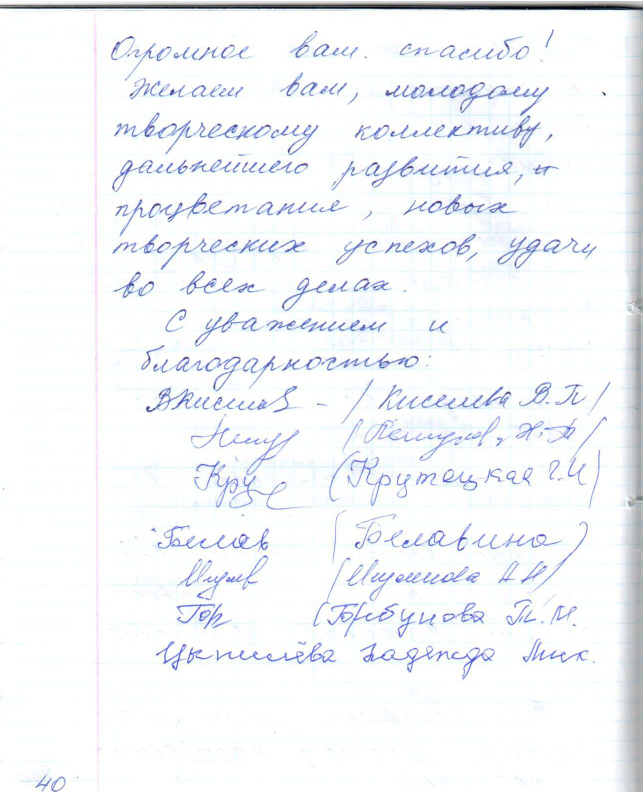 Огромное вам. спасибо!
Желаем вам, молодому
творческому коллективу,
дальнейшего развития, и
процветания, новых
творческих успехов, удачи
во всех делах.
С уважением и
благодарностью:
ВКиселев - /Киселева В.П/
/ Н.А/
Кру (Крутецкая Г.И)
Белав (Белавина)
А Н/
Гор (Горбунова Т.М.
Цыпилёва Надежда Мик.
40